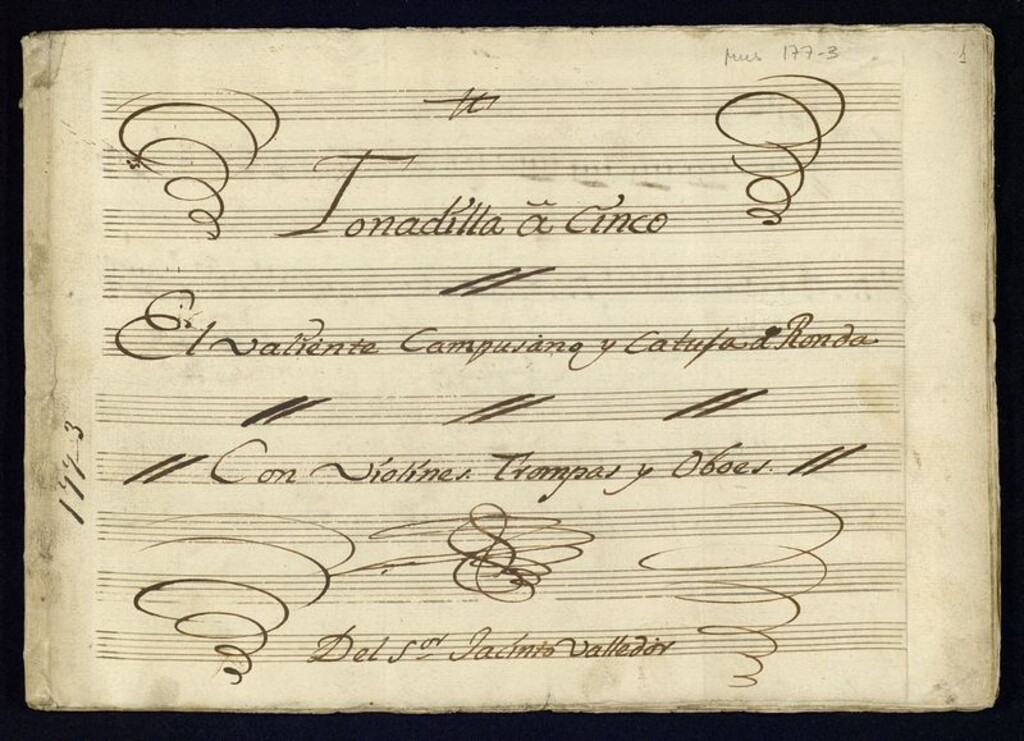 Mus 177-3
1
Tonadilla â Cinco
El valiente Campusano y Catusa d Ronda
Con violines. Trompas y Oboes.
177-3
Del S.or Jacinto Valledor